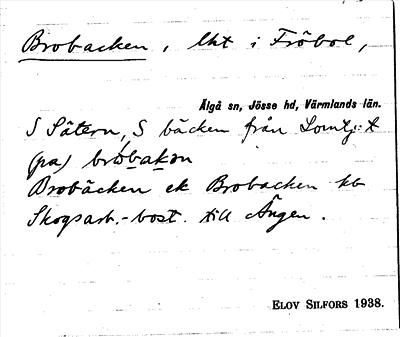 Brobacken, lht i Fröbol,
Älgå sn, Jösse hd, Värmlands län.
S Sätern, S bäcken från Lomtj:t
(pa) brobakən
Brobäcken ek Brobacken kb
Skogsarb.-bost. till Ängen.
ELOV SILFORS 1938.